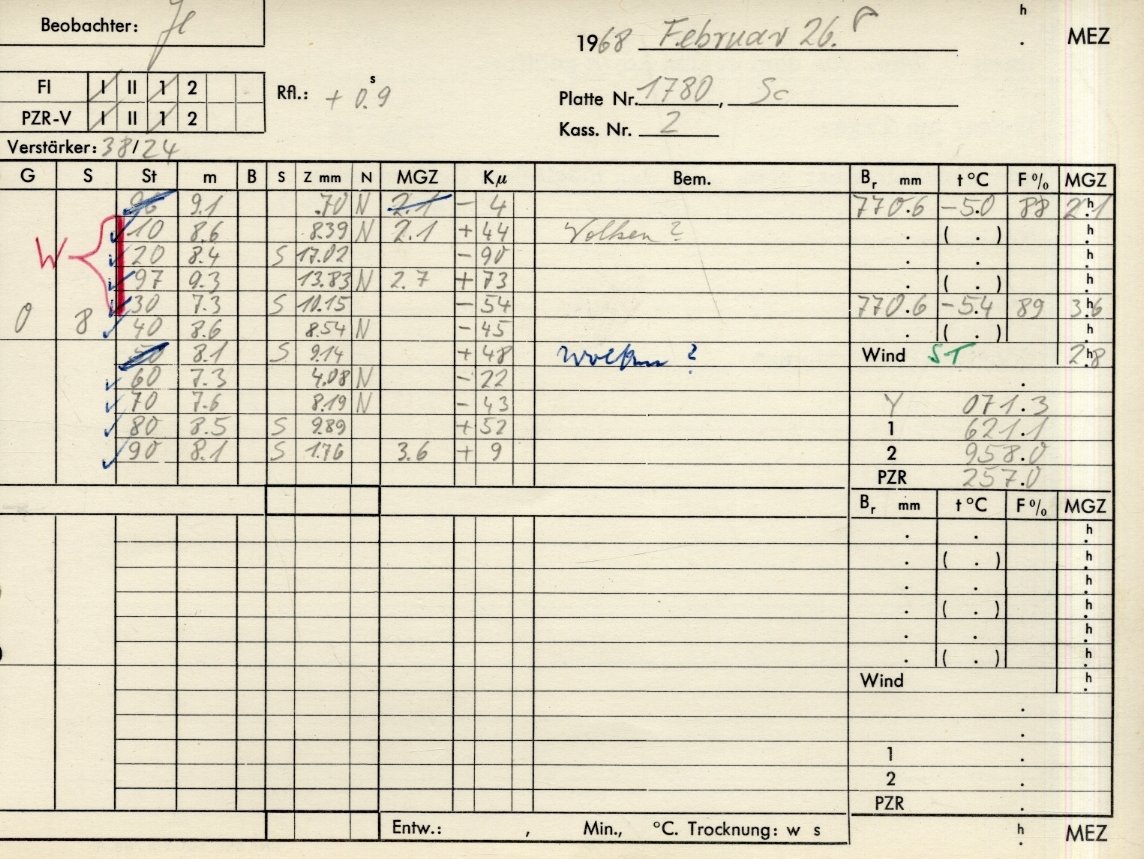 Beobachter: Je
h
1968 Februar 26.
. MEZ
FI I II 1 2
Rfl.: + 0.9 s
Platte Nr. 1780, Sc
PZR-V I II 1 2
Kass. Nr. 2
Verstärker: 38/24
G S St m B S Z mm N MGZ Kμ Bem. Br mm t °C F % MGZ
9.1 .70 N 2.1 - 4 770.6 -5.0 88 2.1 h
10 8.6 8.39 N 2.1 + 44 Wolken? . ( . ) h
W 20 8.4 S 17.02 - 90 . . h
97 9.3 13.83 N 2.7 + 73 . ( . ) h
0 8 30 7.3 S 10.15 - 54 770.6 -5.4 89 3.6 h
40 8.6 8.54 N - 45 . ( . ) h
50 8.1 S 9.14 + 48 Wolken? Wind ST 2.8 h
60 7.3 4.08 N - 22 .
70 7.6 8.19 N - 43 Y 071.3
80 8.5 S 9.89 + 52 1 621.1
90 8.1 S 1.76 3.6 + 9 2 958.0
PZR 257.0
Br mm t °C F % MGZ
. . h
. ( . ) h
. . h
. ( . ) h
. . h
. ( . ) h
Wind . h
.
.
1 .
2 .
PZR .
Entw.: , Min., °C. Trocknung: w s
h
. MEZ